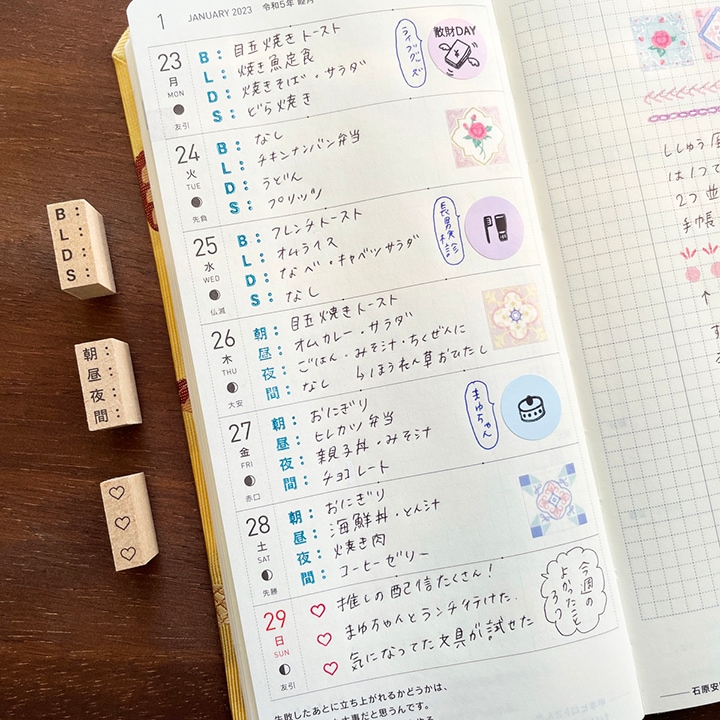 1
JANUARY 2023 令和5年 睦月
23
月
MON
友引
B: 目玉焼きトースト
L: 焼き魚定食
D: 焼きそば・サラダ
S: どら焼き
ライブグッズ
散財DAY
24
火
TUE
先負
B: なし
L: チキンナンバン弁当
D: うどん
S: プリッツ
25
水
WED
仏滅
B: フレンチトースト
L: オムライス
D: なべ・キャベツサラダ
S: なし
長男検診
26
木
THU
大安
朝: 目玉焼きトースト
昼: オムカレー・サラダ
夜: ごはん・みそ汁・ちくぜんに
間: なし ↳ほうれん草おひたし
27
金
FRI
赤口
朝: おにぎり
昼: ヒレカツ弁当
夜: 親子丼・みそ汁
間: チョコレート
まゆちゃん
28
土
SAT
先勝
朝: おにぎり
昼: 海鮮丼・とん汁
夜: 焼き肉
間: コーヒーゼリー
29
日
SUN
友引
♡ 推しの配信たくさん!
♡ まゆちゃんとランチ行けた.
♡ 気になってた文具が試せた
今週の
よかったこと
3つ
失敗したあとに立ち上がれるかどうかは、
B:
L:
D:
S:
朝:
昼:
夜:
間:
ししゅう
は1つで
2つ並
手帳
↑
石原安